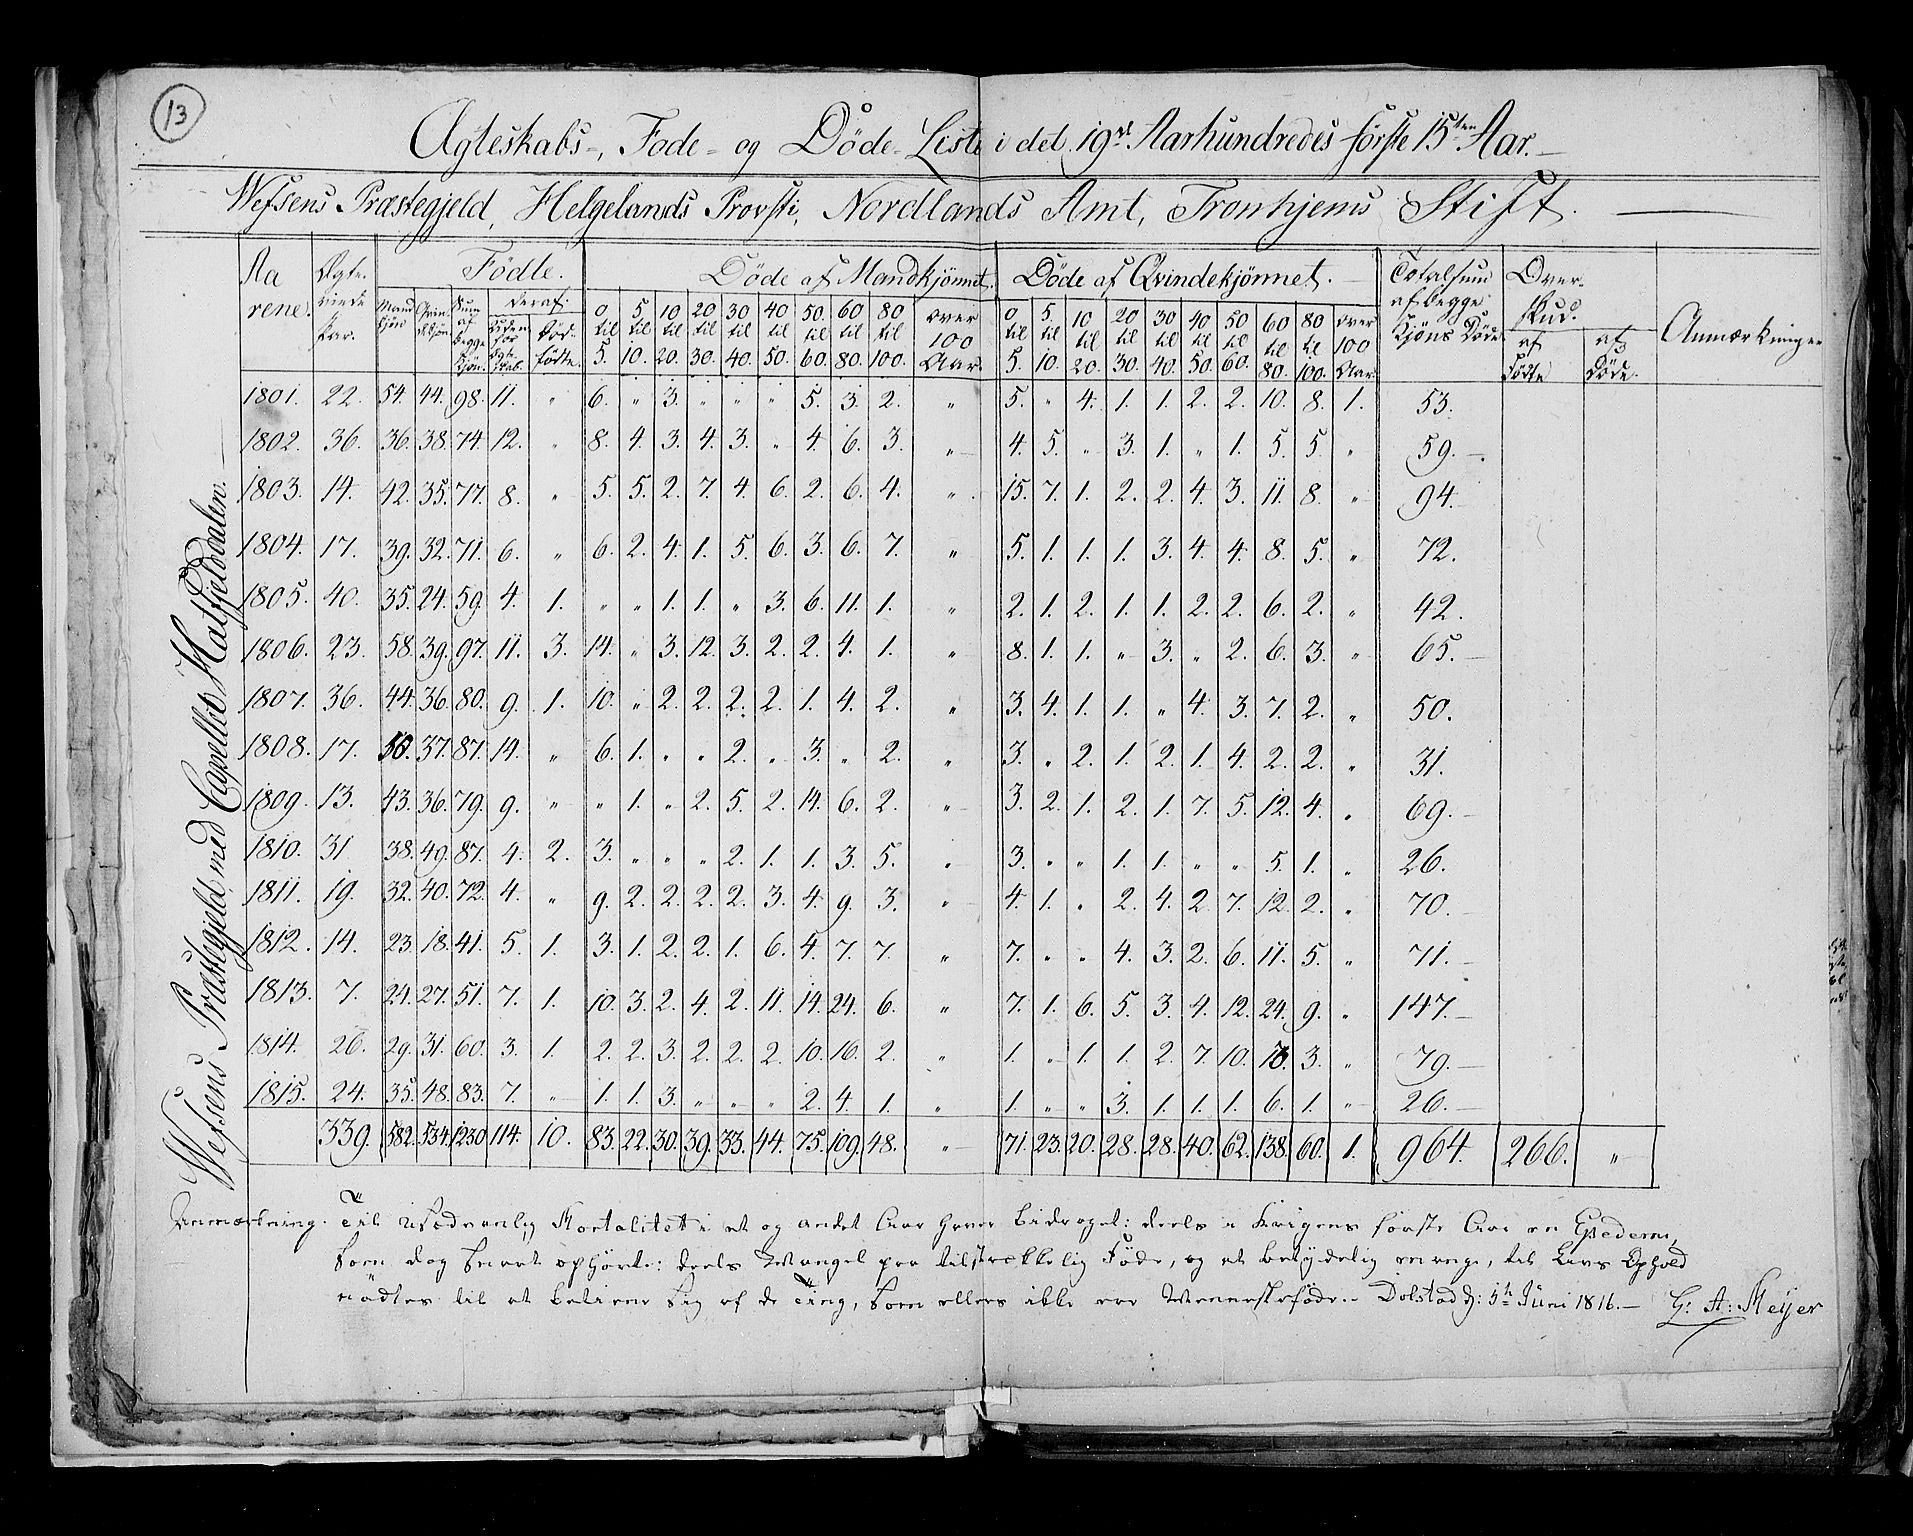 13
Ægteskabs-, Føde- og Døde-Liste i det 19de Aarhundredes første 15ten Aar.
Wefsens Præstegjeld, Helgelands Provsti, Nordlands Amt, Tronhjems Stift.
Wefsens Præstegjeld med Capellet Hatfjelddalen.
Aarene. Ægteviede Par. Fødte. Døde af Mandkjønnet. Døde af Qvindekjønnet. Totalsum af begge Kjøns Døde Overskud. Anmærkninger
Mandkjøn Qvindekjøn Sum af begge Kjøn. deraf: Uden for Ægteskab. Dødfødte. 0 til 5. 5 til 10. 10 til 20. 20 til 30. 30 til 40. 40 til 50. 50 til 60. 60 til 80. 80 til 100. over 100 Aar. 0 til 5. 5 til 10. 10 til 20. 20 til 30. 30 til 40. 40 til 50. 50 til 60. 60 til 80. 80 til 100. over 100 Aar. af Fødte af Døde.
1801. 22. 54. 44. 98. 11. " 6. " 3. " " " 5. 3. 2. " 5. " 4. 1. 1. 2. 2. 10. 8. 1. 53.
1802. 36. 36. 38. 74. 12. " 8. 4. 3. 4. 3. " 4. 6. 3. " 4. 5. " 3. 1. " 1. 5. 5. " 59.
1803. 14. 42. 35. 77. 8. " 5. 5. 2. 7. 4. 6. 2. 6. 4. " 15. 7. 1. 2. 2. 4. 3. 11. 8. " 94.
1804. 17. 39. 32. 71. 6. " 6. 2. 4. 1. 5. 6. 3. 6. 7. " 5. 1. 1. 1. 3. 4. 4. 8. 5. " 72.
1805. 40. 35. 24. 59. 4. 1. " " 1. 1. " 3. 6. 11. 1. " 2. 1. 2. 1. 1. 2. 2. 6. 2. " 42.
1806. 23. 58. 39. 97. 11. 3. 14. " 3. 12. 3. 2. 2. 4. 1. " 8. 1. 1. " 3. " 2. 6. 3. " 65.
1807. 36. 44. 36. 80. 9. 1. 10. " 2. 2. 2. 2. 1. 4. 2. " 3. 4. 1. 1. " 4. 3. 7. 2. " 50.
1808. 17. 50. 37. 87. 14. " 6. 1. " " 2. " 3. " 2. " 3. " 2. 1. 2. 1. 4. 2. 2. " 31.
1809. 13. 43. 36. 79. 9. " " 1. " 2. 5. 2. 14. 6. 2. " 3. 2. 1. 2. 1. 7. 5. 12. 4. " 69.
1810. 31 38. 49. 87. 4. 2. 3. " " " 2. 1. 1. 3. 5. " 3. " " 1. 1. " " 5. 1. " 26.
1811. 19. 32. 40. 72. 4. " 9. 2. 2. 2. 2. 3. 4. 9. 3. " 4. 1. " 2. 4. 2. 7. 12. 2. " 70.
1812. 14. 23. 18. 41. 5. 1. 3. 1. 2. 2. 1. 6. 4. 7. 7. " 7. " " 4. 3. 2. 6. 11. 5. " 71.
1813. 7. 24. 27. 51. 7. 1. 10. 3. 2. 4. 2. 11. 14. 24. 6. " 7. 1. 6. 5. 3. 4. 12. 24. 9. " 147.
1814. 26. 29. 31. 60. 3. 1. 2. 2. 3. 2. 2. 2. 10. 16. 2. " 1. " 1. 1. 2. 7. 10. 13. 3. " 79.
1815. 24. 35. 48. 83. 7. " 1. 1. 3. " " " 2. 4. 1. " 1. " " 3. 1. 1. 1. 6. 1. " 26.
339. 582. 534. 1230 114. 10. 83. 22. 30. 39. 33. 44. 75. 109. 48. " 71. 23. 20. 28. 28. 40. 62. 138. 60. 1. 964. 266. "
Anmærkning. Til usædvanlig Mortalitet i et og andet Aar haver bidraget: deels i Krigens første Aar en Epedemi,
som dog snart ophørte: deels Mangel paa tilstrækkelig Føde, og at betydelig mange, til Livs Ophold
nødtes til at betiene sig af de Ting, som ellers ikke ere Menneskeføde. Dolstad d: 5te Juni 1816. G: A: Meijer